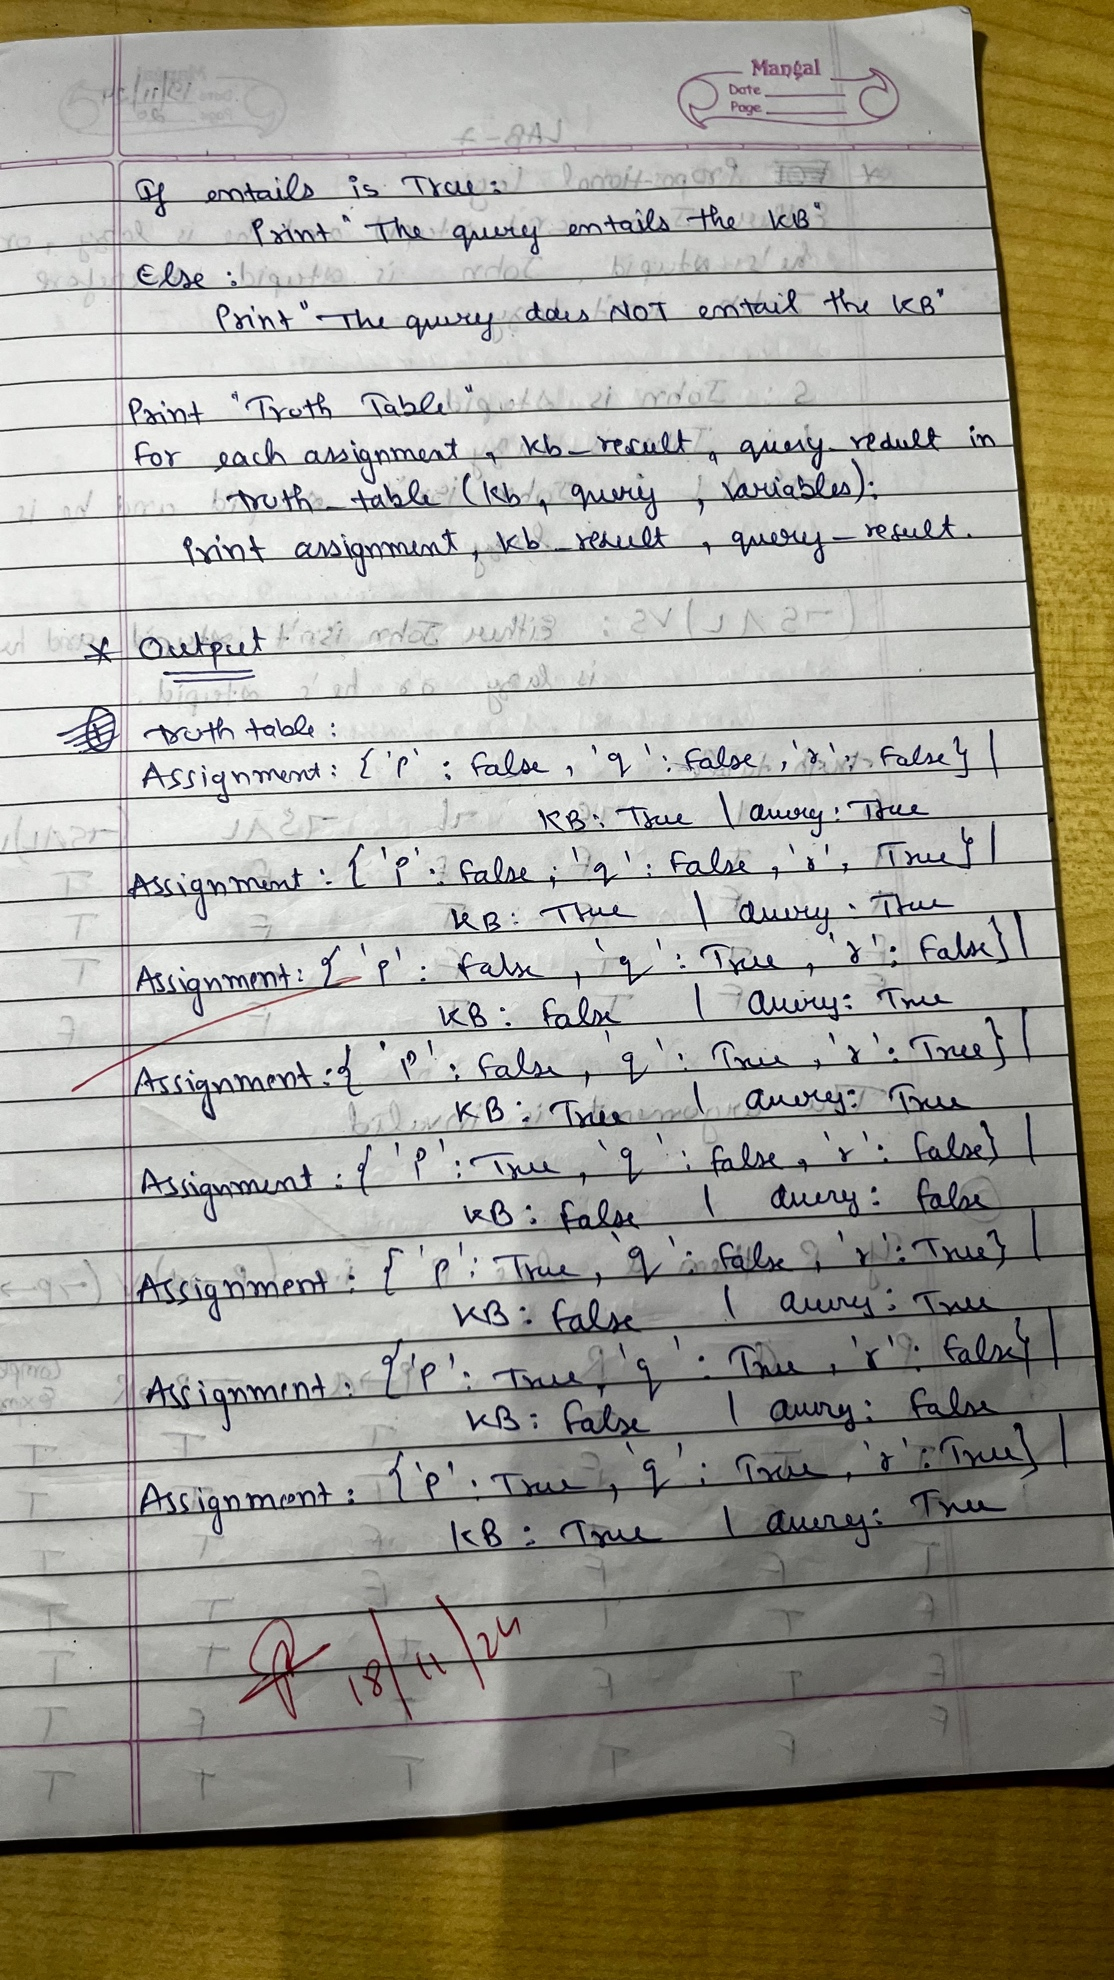 Mangal
Date
Page
If entails is True:
Print "The query entails the KB"
Else :
Print "The query does NOT entail the KB"
Print "Truth Table"
For each assignment, kb_result, query_redult in
truth_table (kb, query, variables):
Print assignment, kb_result, query_result.
* Output
Truth table :
Assignment: {'p' : False, 'q' : False, 'r' : False} |
KB: True | Query: True
Assignment : {'p' : False, 'q' : False, 'r', True} |
KB: True | Query: True
Assignment: {'p' : False, 'q' : True, 'r' : False} |
KB: False | Query: True
Assignment: {'p' : False, 'q' : True, 'r' : True} |
KB: True | Query: True
Assignment : {'p' : True, 'q' : False, 'r' : False} |
KB: False | Query: False
Assignment : {'p' : True, 'q' : False, 'r' : True} |
KB: False | Query: True
Assignment : {'p' : True, 'q' : True, 'r' : False} |
KB: False | Query: False
Assignment : {'p' : True, 'q' : True, 'r' : True} |
KB: True | Query: True
18/11/24